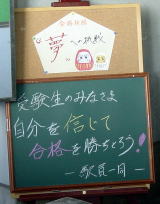 合格祈願
"夢"への挑戦
受験生のみなさま
自分を信じて
合格を勝ちとろう!
—駅員一同—